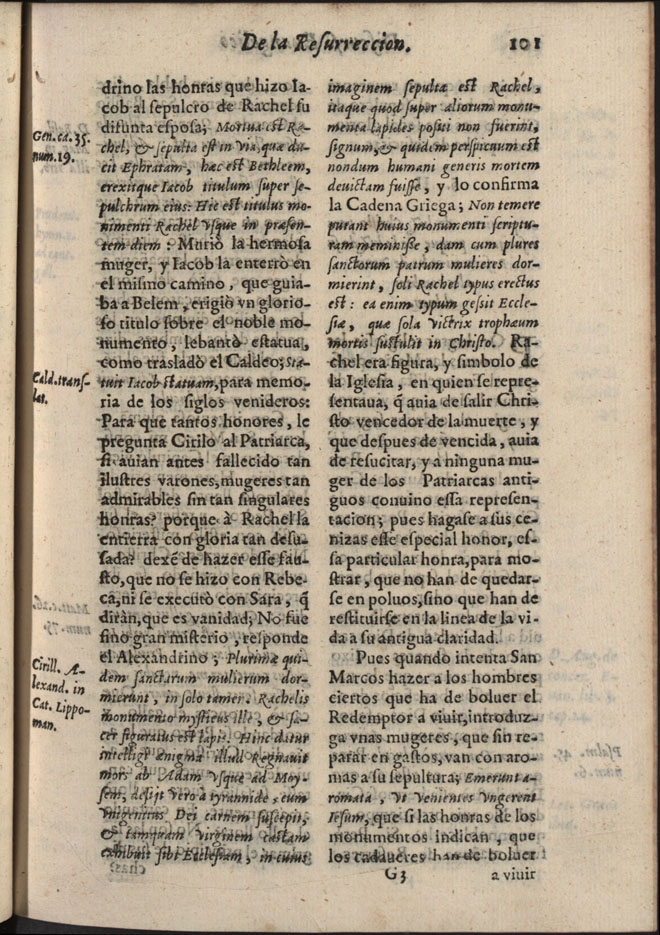 De la Resurreccion. 101
drino las honras que hizo Ia-
cob al sepulcro de Rachel su
difunta esposa; Mortua est Ra-
chel, & sepulta est in via, quæ du-
cit Ephratam, hæc est Bethleem,
erexitque Iacob titulum super se-
pulchrum eius: Hic est titulus mo-
nimenti Rachel vsque in præsen-
tem diem: Muriò la hermosa
muger, y Iacob la enterrò en
el mismo camino, que guia-
ba a Belem, erigiò vn glorio-
so titulo sobre el noble mo-
numento, lebantò estatua,
como trasladò el Caldeo; Sta-
tuit Iacob statuam, para memo-
ria de los siglos venideros:
Para que tantos honores, le
pregunta Cirilo al Patriarca,
si auian antes fallecido tan
ilustres varones, mugeres tan
admirables sin tan singulares
honras? porque à Rachel la
entierra con gloria tan desu-
sada? dexē de hazer esse faus-
to, que no se hizo con Rebe-
ca, ni se executò con Sara, q̃
diràn, que es vanidad; No fue
sino gran misterio, responde
el Alexandrino; Plurimæ qui-
dem sanctarum mulierum dor-
mierunt, in solo tamen Rachelis
monumento mysticus ille, & sa-
cer figuratus est lapis. Hinc datur
intelligi ænigma illud Regnauit
mors ab Adam vsque ad Moy-
sem; desijt vero à tyrannide, cum
vnigenitus Dei carnem suscepit,
& tamquam virginem castam
exhibuit sibi Ecclesiam, in cuius
Gen. ca. 35.
num. 19.
Cald. trans-
lat.
Cirill. A-
lexand. in
Cat. Lippo-
man.
imaginem sepulta est Rachel,
itaque quod super aliorum monu-
menta lapides positi non fuerint,
signum, & quidem perspicuum est
nondum humani generis mortem
deuictam fuisse, y lo confirma
la Cadena Griega; Non temere
putant huius monumenti scriptu-
ram meminisse, dum cum plures
sanctorum patrum mulieres dor-
mierint, soli Rachel typus erectus
est: ea enim typum gessit Eccle-
siæ, quæ sola victrix trophæum
mortis sustulit in Christo. Ra-
chel era figura, y simbolo de
la Iglesia, en quien se repre-
sentaua, q̃ auia de salir Chri-
sto vencedor de la muerte, y
que despues de vencida, auia
de resucitar, y a ninguna mu-
ger de los Patriarcas anti-
guos conuino essa represen-
tacion; pues hagase a sus ce-
nizas este especial honor, es-
sa particular honra, para mo-
strar, que no han de quedar-
se en poluos, sino que han de
restituirse en la linea de la vi-
da a su antigua claridad.
Pues quando intenta San
Marcos hazer a los hombres
ciertos que ha de boluer el
Redemptor a viuir, introduz-
ga vnas mugeres, que sin re-
parar en gastos, van con aro-
mas a su sepultura; Emerunt a-
romata, vt venientes vngerent
Iesum, que si las honras de los
monumentos indican, que
los cadaueres han de boluer
G3 a viuir